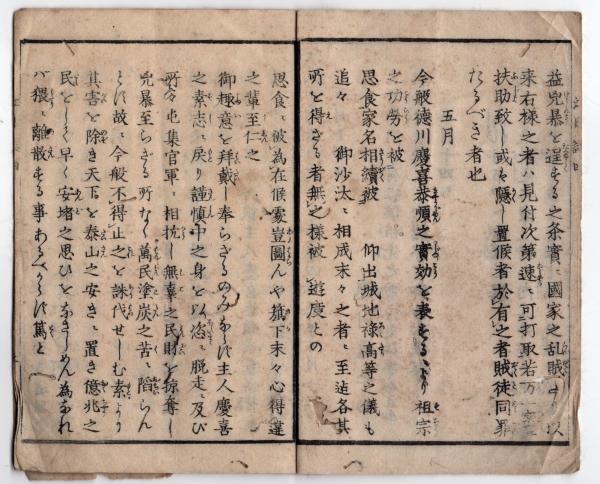 益兇暴を逞する之条實ニ國家之乱賊たり以
来右様之者ハ見付次第速ニ可打取若万一
扶助致し或ハ隠し置候者於有之者賊徒同罪
たるべき者也
五月
今般徳川慶喜恭順之實効を表するにより祖宗
之功労を被
思食家名相續被　仰出城地禄高等之儀も
追々　御沙汰ニ相成末々之者ニ至迄各其
所を得ざる者無之様被　遊度との
思食ニ被為在候處豈圖んや籏下末々心得違
之輩至仁之
御趣意を拝戴し奉らざるのみならず主人慶喜
之素志ニ戻り謹慎中之身を以恣ニ脱走ニ及び
所々屯集官軍ニ相抗し無辜之民財を掠奪し
兇暴至らざる所なく萬民塗炭之苦ニ陥らん
とす故ニ今般不得止之を誅伐せしむ素より
其害を除き天下を泰山之安きニ置き億兆之
民をして早く安堵之思ひをなさしめん為なれ
バ猥ニ離散する事あるべからず篤と